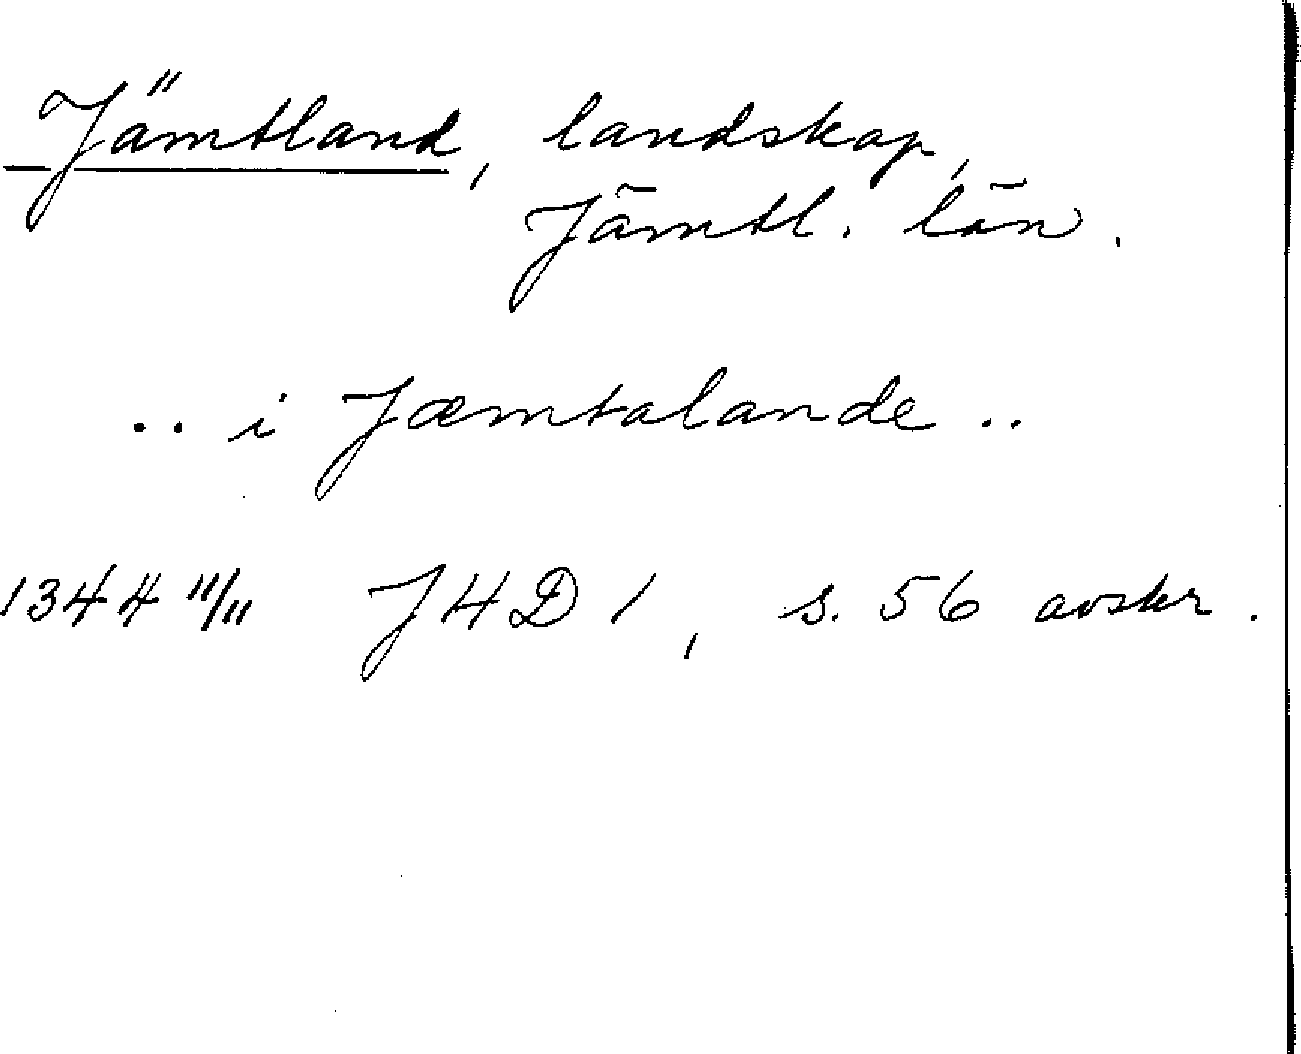 Jämtland, landskap,
Jämtl. län.
.. i Jæmtalande ..
1344 11/11 JHD 1, s. 56 avskr.